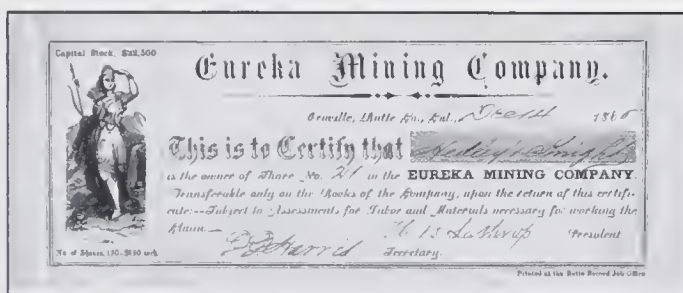 Capital Stock, $22,500
Eureka Mining Company.
Oroville, Butte Co., Cal., Dec 14 186
This is to Certify that Hedley & Knight
is the owner of Share No. 21 in the EUREKA MINING COMPANY.
Transferable only on the Books of the Company, upon the return of this certifi-
cate:--Subject to Assessments for Labor and Materials necessary for working the
Claim.--
H B Lathrop President
Harris Secretary.
No of Shares, 150-$150 each
Printed at the Butte Record Job Office